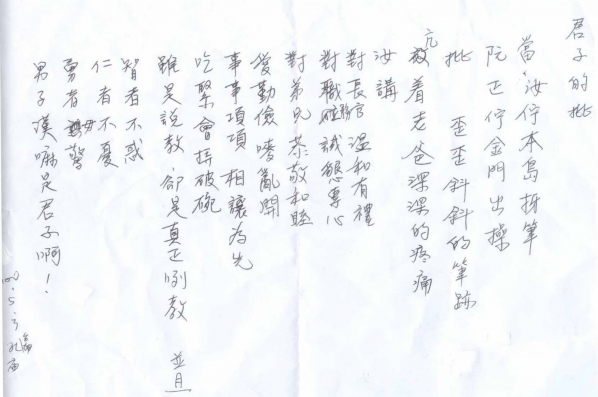 君子的批
當汝佇本島 筆
阮正佇金門出操
批 歪歪斜斜的筆跡
亢着老爸深深的疼痛
汝講
對長官溫和有禮
對職務誠懇專心
對弟兄恭敬和睦
愛勤儉嘜亂開
事事項項 相讓為先
吃緊會 破碗
雖是說教.卻是真正咧教
智者不惑
仁者不憂
勇者毋驚
男子漢嘛是君子啊!